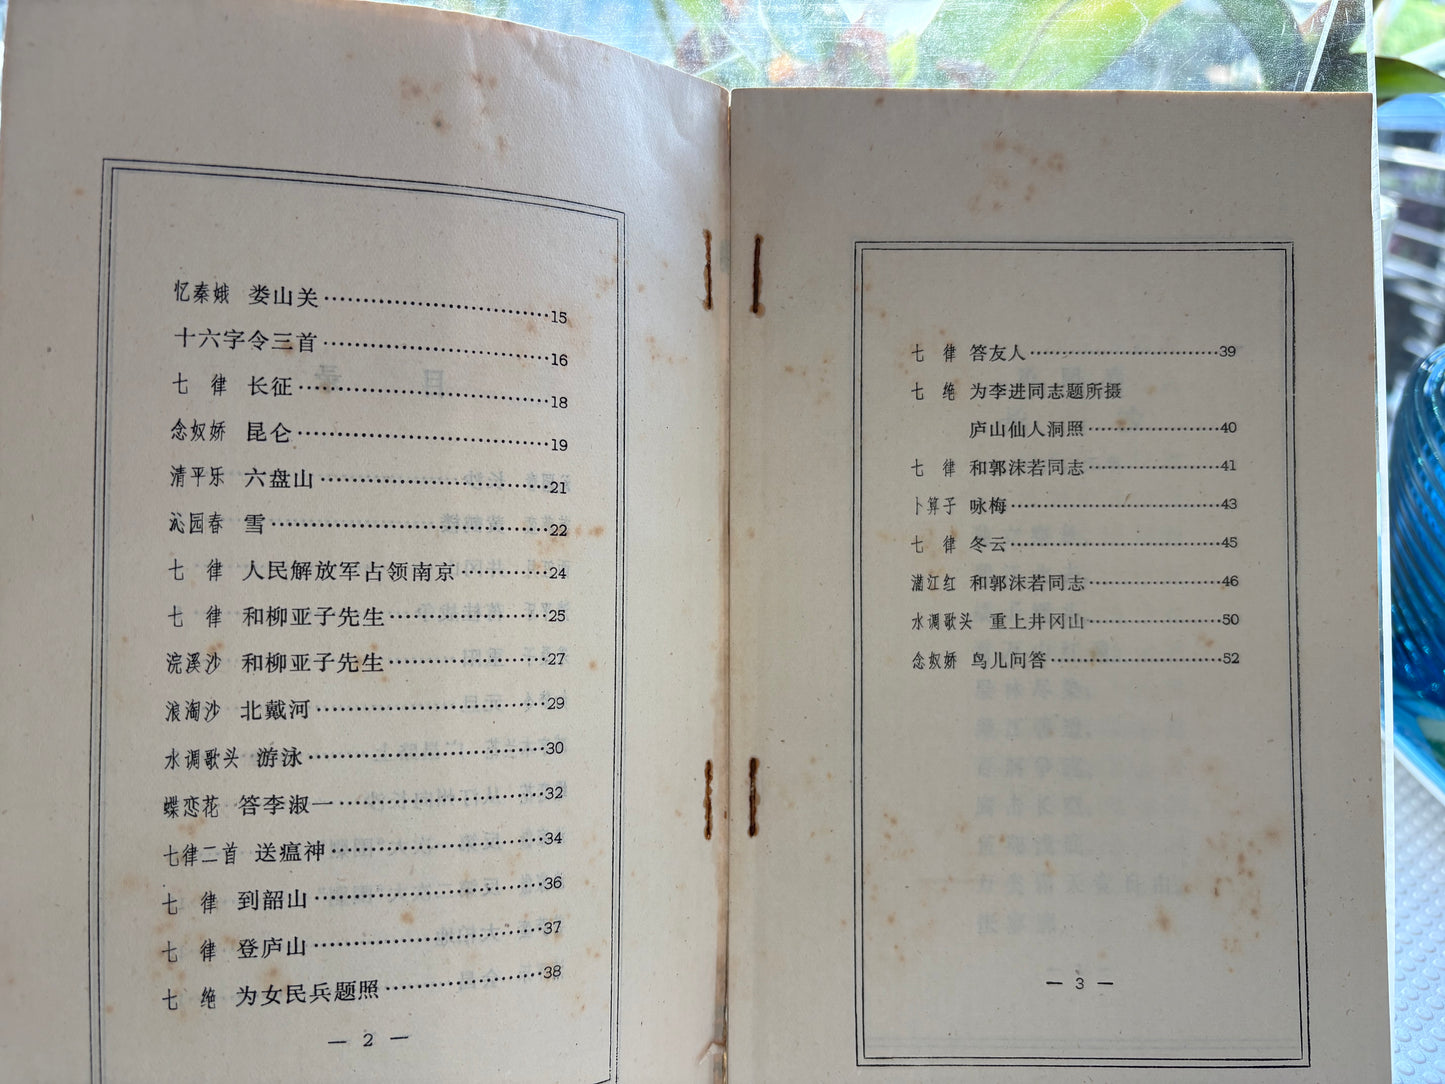 忆秦娥 娄山关……………………15
十六字令三首……………………16
七 律 长征……………………18
念奴娇 昆仑……………………19
清平乐 六盘山……………………21
沁园春 雪……………………22
七 律 人民解放军占领南京…………24
七 律 和柳亚子先生………………25
浣溪沙 和柳亚子先生………………27
浪淘沙 北戴河……………………29
水调歌头 游泳……………………30
蝶恋花 答李淑一…………………32
七律二首 送瘟神…………………34
七 律 到韶山……………………36
七 律 登庐山……………………37
七 绝 为女民兵题照………………38
— 2 —
七 律 答友人……………………39
七 绝 为李进同志题所摄
庐山仙人洞照………………40
七 律 和郭沫若同志………………41
卜算子 咏梅……………………43
七 律 冬云……………………45
满江红 和郭沫若同志………………46
水调歌头 重上井冈山………………50
念奴娇 鸟儿问答…………………52
— 3 —